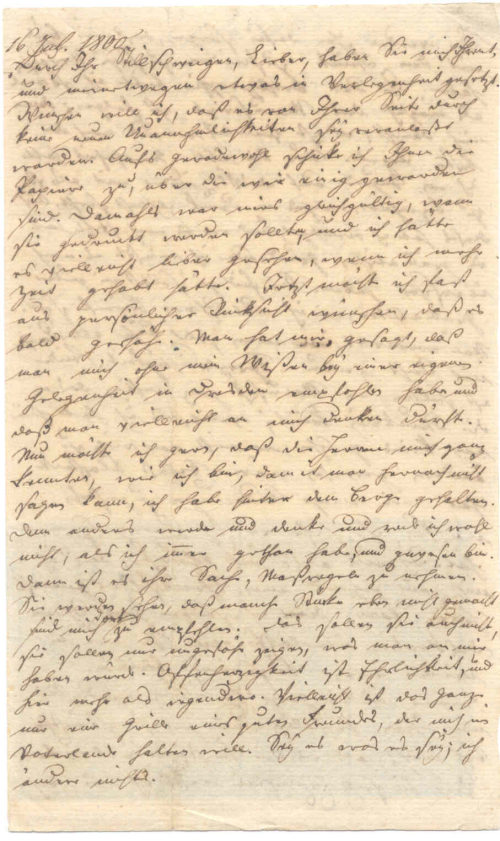 16 Jul. 1800.
Durch Ihr Stillschweigen, Lieber, haben Sie mich Ihrent
und meinetwegen etwas in Verlegenheit gesetzt.
Wünschen will ich, daß es von Ihrer Seite durch
keine neuen Unannehmlichkeiten sey veranlaßt
worden. Aufs geradewohl schicke ich Ihnen die
Papiere zu, über die wir einig geworden
sind. Damahls war mirs gleichgültig, wenn
sie gedruckt werden sollten, und ich hätte
es vielleicht lieber gesehen, wenn ich mehr
Zeit gehabt hätte. Jetzt möcht ich fast
aus persönlicher Rücksicht wünschen, daß es
bald geschäh. Man hat mir gesagt, daß
man mich ohne mein Wissen bey einer eigenen
Gelegenheit in Dresden empfohlen habe und
daß man vielleicht an mich denken dürfte.
Nun möchte ich gern, daß die Herren mich ganz
kennten, wie ich bin, damit man hernach nicht
sagen kann, ich habe hinter dem Berge gehalten.
Denn anders werde und denke und rede ich wohl
nicht, als ich immer gethan habe, und gewesen bin.
Dann ist es ihre Sache, Maßregeln zu nehmen.
Sie werden sehen, daß manche Stücke eben nicht gemacht
sind mich zu empfehlen. Das sollen sie auch nicht
sie sollen nur ungefähr zeigen, was man an mir
haben würde. Offenherzigkeit ist Ehrlichkeit, und
hier mehr als irgendwo. Vielleicht ist das Ganze
nur eine Grille eines guten Freundes, der mich im
Vaterlande halten will. Sey es was es sey; ich
ändere nichts.